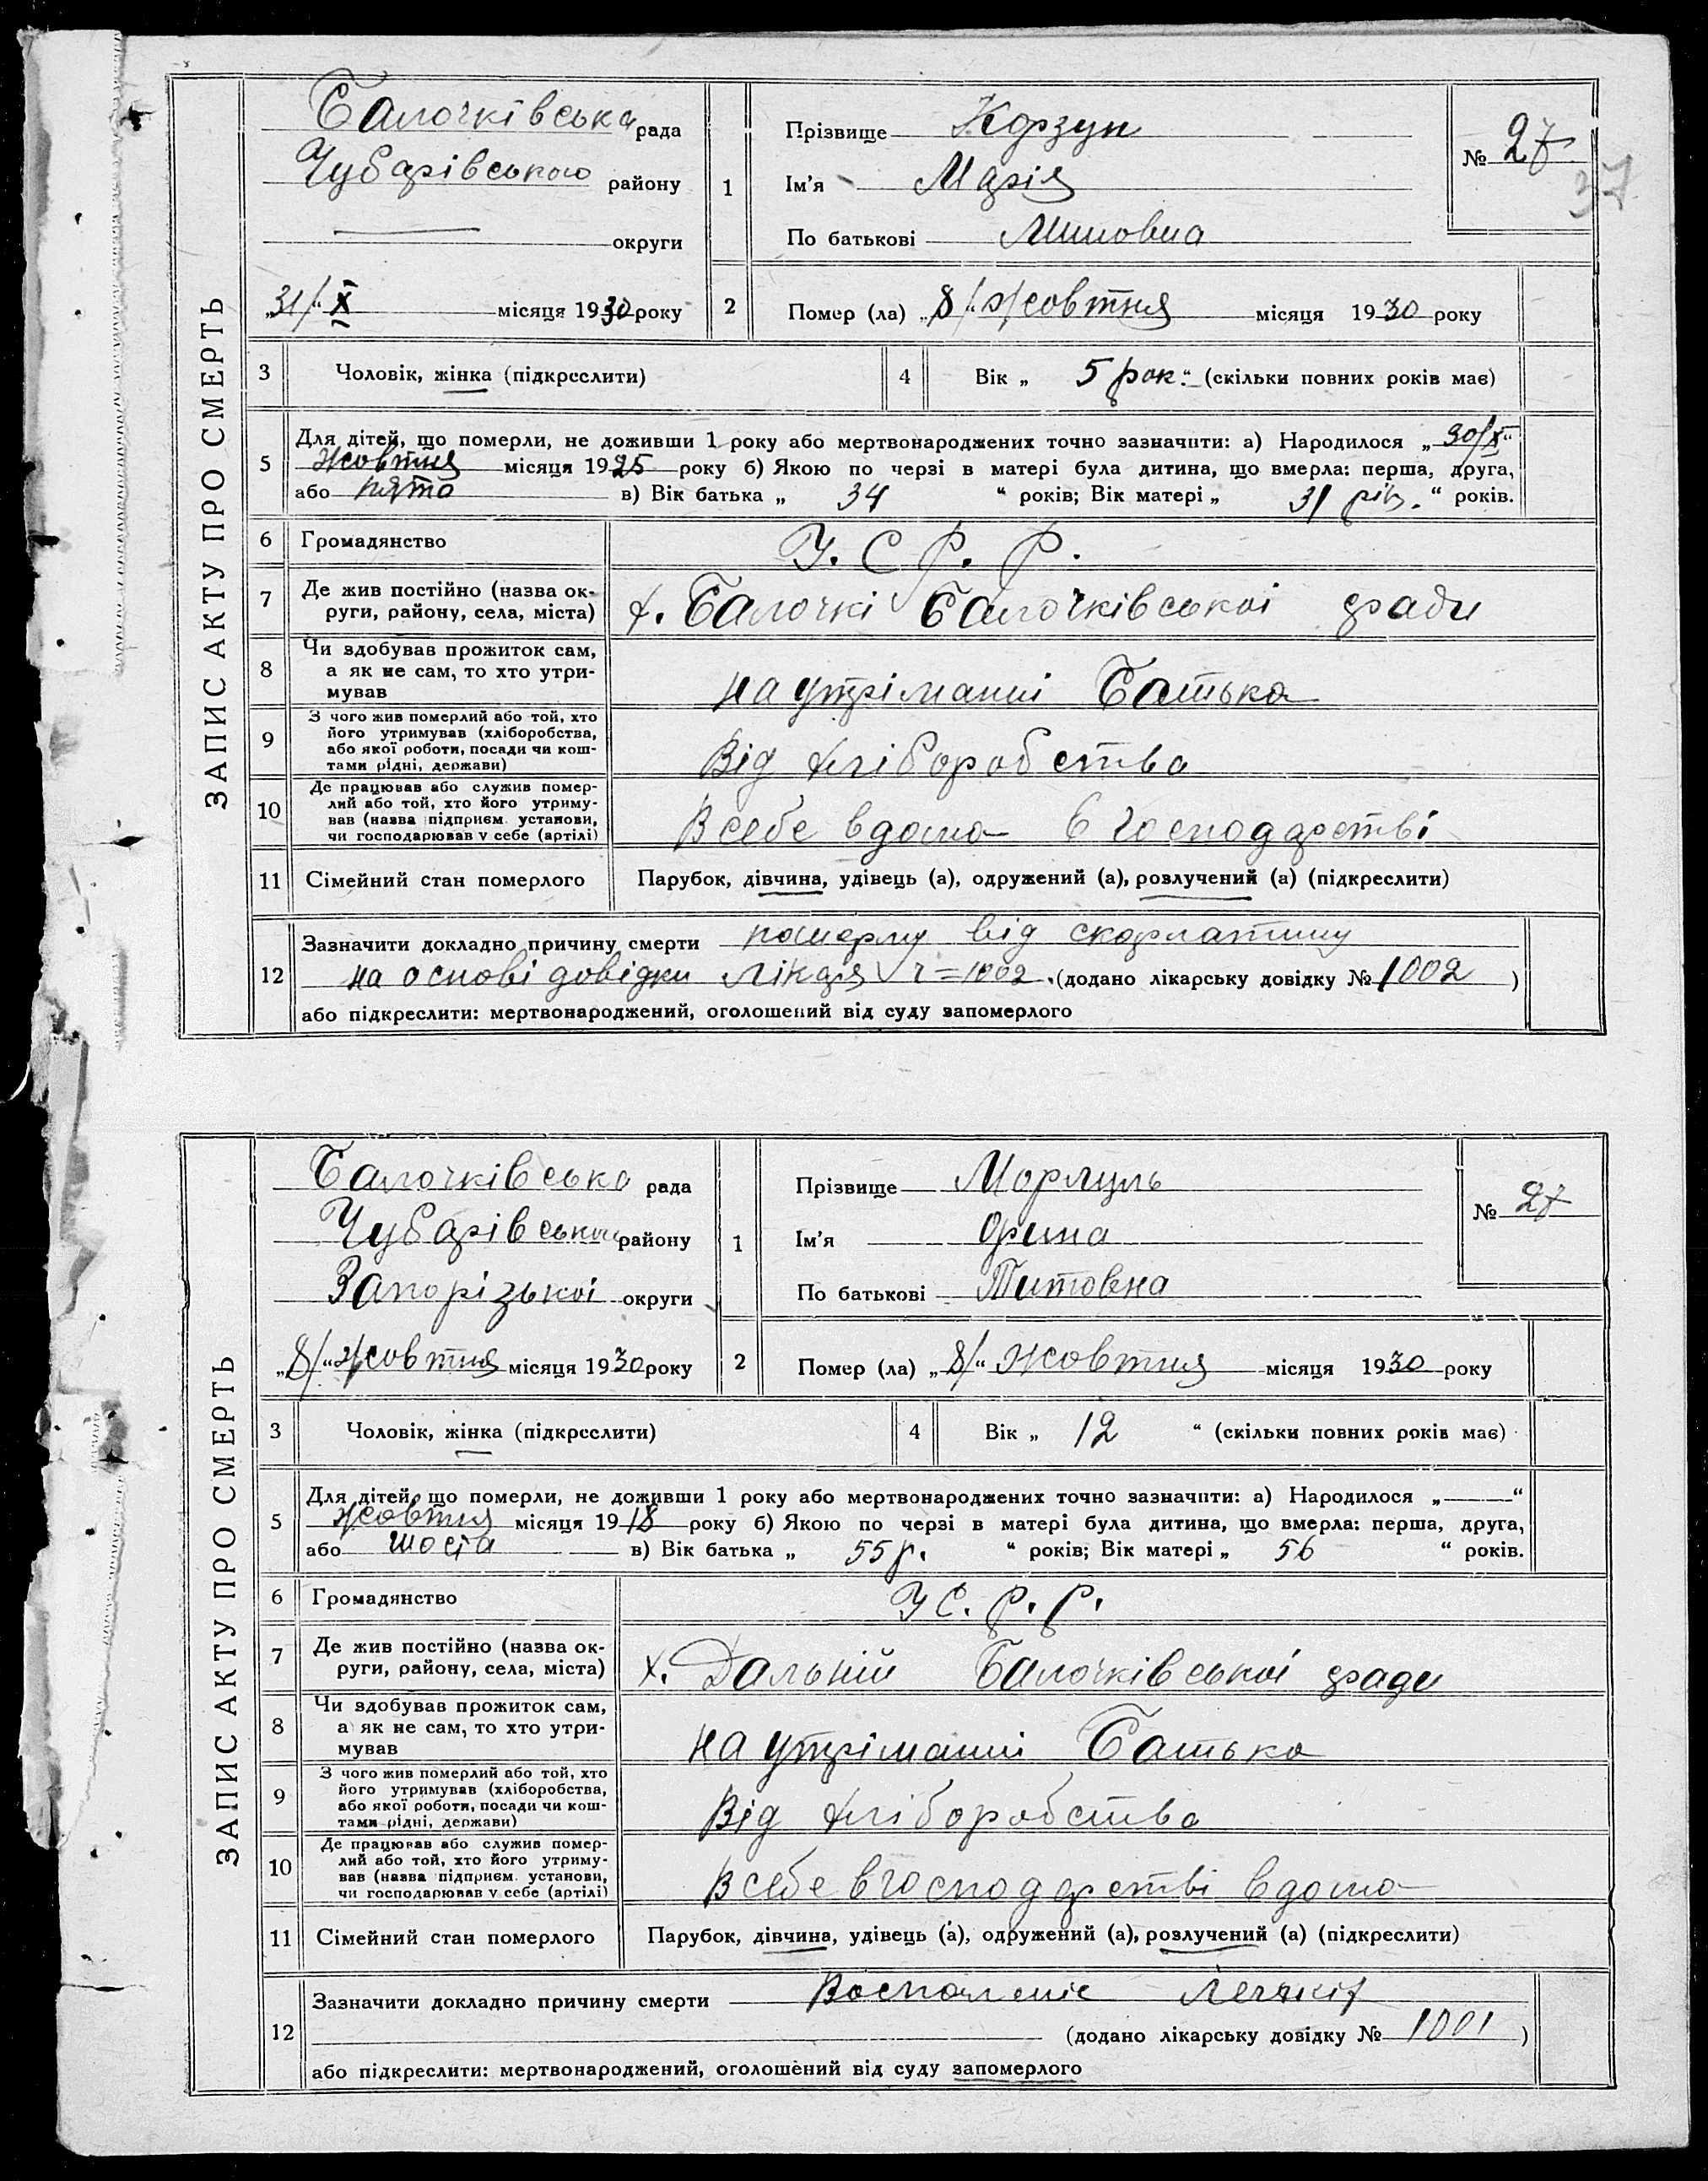 ЗАПИС АКТУ ПРО СМЕРТЬ
Балочківська рада
Чубарівського району
округи
„31/“ X місяця 1930 року
1
Прізвище Корзун
Ім’я Марія
По батькові
№ 27
37
2
Помер (ла) „8/“ Жовтня місяця 1930 року
3
Чоловік, жінка (підкреслити)
4
Вік „ 5 рок. “ (скільки повних років має)
5
Для дітей, що померли, не доживши 1 року або мертвонароджених точно зазначити: а) Народилося „ 30/X “
Жовтня місяця 1925 року б) Якою по черзі в матері була дитина, що вмерла: перша, друга,
або пята в) Вік батька „ 34 “ років; Вік матері „ 31 рік. “ років.
6
Громадянство
У. С. Р. Р.
7
Де жив постійно (назва ок-
руги, району, села, міста)
х. Балочкі Балочківськоі ради
8
Чи здобував прожиток сам,
а як не сам, то хто утри-
мував
на утріманні Батька
9
З чого жив померлий або той, хто
його утримував (хліборобства,
або якої роботи, посади чи кош-
тами рідні, держави)
Від хліборобства
10
Де працював або служив помер-
лий або той, хто його утриму-
вав (назва підприєм. установи,
чи господарював у себе (артілі)
В себе вдома в господарстві
11
Сімейний стан померлого
Парубок, дівчина, удівець (а), одружений (а), розлучений (а) (підкреслити)
12
Зазначити докладно причину смерти померла від скорлатину
на основі довідки лікаря ч=1002. (додано лікарську довідку № 1002 )
або підкреслити: мертвонароджений, оголошений від суду запомерлого
ЗАПИС АКТУ ПРО СМЕРТЬ
Балочківська рада
Чубарівського району
Запорізькоі округи
„8/“ Жовтня місяця 1930 року
1
Прізвище
Ім’я Орина
По батькові Титовна
№ 27
2
Помер (ла) „8/“ Жовтня місяця 1930 року
3
Чоловік, жінка (підкреслити)
4
Вік „ 12 “ (скільки повних років має)
5
Для дітей, що померли, не доживши 1 року або мертвонароджених точно зазначити: а) Народилося „ — “
Жовтня місяця 1918 року б) Якою по черзі в матері була дитина, що вмерла: перша, друга,
або шоста в) Вік батька „ 55 р. “ років; Вік матері „ 56 “ років.
6
Громадянство
У С. Р. Р.
7
Де жив постійно (назва ок-
руги, району, села, міста)
х. Дальній Балочківськоі ради
8
Чи здобував прожиток сам,
а як не сам, то хто утри-
мував
на утріманні Батька
9
З чого жив померлий або той, хто
його утримував (хліборобства,
або якої роботи, посади чи кош-
тами рідні, держави)
Від хліборобства
10
Де працював або служив помер-
лий або той, хто його утриму-
вав (назва підприєм. установи,
чи господарював у себе (артілі)
В себе в господарстві вдома
11
Сімейний стан померлого
Парубок, дівчина, удівець (а), одружений (а), розлучений (а) (підкреслити)
12
Зазначити докладно причину смерти Воспаленіє
(додано лікарську довідку № 1001 )
або підкреслити: мертвонароджений, оголошений від суду запомерлого